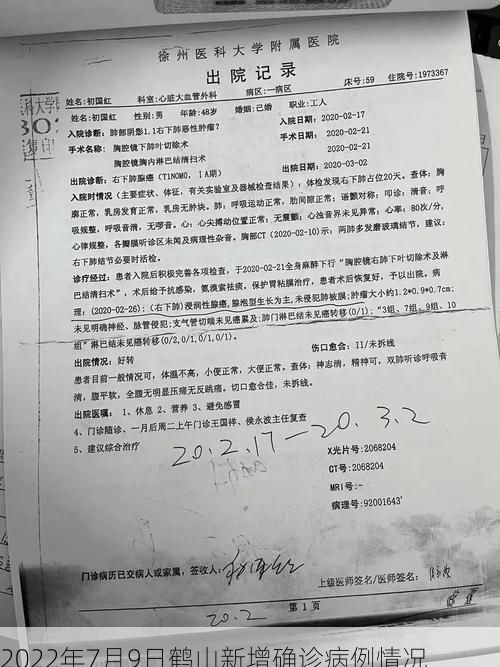 徐州医科大学附属医院
出院记录
床号:59 住院号:1973367
姓名:初国红 科室:心脏大血管外科 病区:一病区
姓名:初国红 性别:男 年龄:48岁 婚姻:已婚 职业:工人
入院诊断: 肺部阴影1.1右下肺恶性肿瘤? 入院日期: 2020-02-17
手术名称: 胸腔镜下肺叶切除术 手术日期: 2020-02-21
胸腔镜胸内淋巴结清扫术 2020-02-21
出院诊断: 右下肺腺癌(T1N0M0, ⅠA期) 出院日期: 2020-03-02
入院时情况(主要症状、体征,有关实验室及器械检查结果):体检发现右下肺占位20天。查体:胸
廓正常,乳房发育正常,乳房无肿块。肺:呼吸运动正常,肋间隙正常;语颤对称;叩诊:清音;呼
吸规整,呼吸音清,无啰音。心:心尖搏动位置正常;无震颤;心浊音界未见异常;心率:80次/分,
心律规整,各瓣膜听诊区未闻及病理性杂音。胸部CT(2020-02-10)示:两肺多发磨玻璃结节,建议:
右下肺结节必要时活检。
诊疗经过: 患者入院后积极完善各项检查,于2020-02-21全身麻醉下行“胸腔镜右肺下叶切除术及淋
巴结清扫术”,术后给予抗感染,氨溴索祛痰,保护胃粘膜治疗,患者术后恢复好,予以出院。病
理:(2020-02-26):(右下肺)浸润性腺癌,腺泡型生长为主,未侵犯肺被膜;肿瘤大小约1.2*0.9*0.7cm;
未见明确神经、脉管侵犯;支气管切端未见癌累及;肺门淋巴结未见癌转移(0/1);“3组、7组、9组、10
组”淋巴结未见癌转移(0/2,0/1,0/1,0/1)。
出院情况: 好转 伤口愈合: II/未拆线
患者目前一般情况可,体温不高,小便正常,大便正常。查体:神志清,精神可,双肺听诊呼吸音
清,腹平软,全腹无明显压痛无反跳痛。切口愈合佳,未拆线。
出院医嘱: 1、休息 2、营养 3、避免感冒
4、门诊随诊、一月后周二上午门诊王国祥、侯永波主任复查
5、建议综合治疗
20.2.17—20.3.2
X光片号:2068204
CT号:2068204
MRI号:-
病理号:92001643'
门诊病历已交病人或家属,签收人:
上级医师签名/医师签名:
第 1 页
20.2
2022年7月9日鹤山新增确诊病例情况